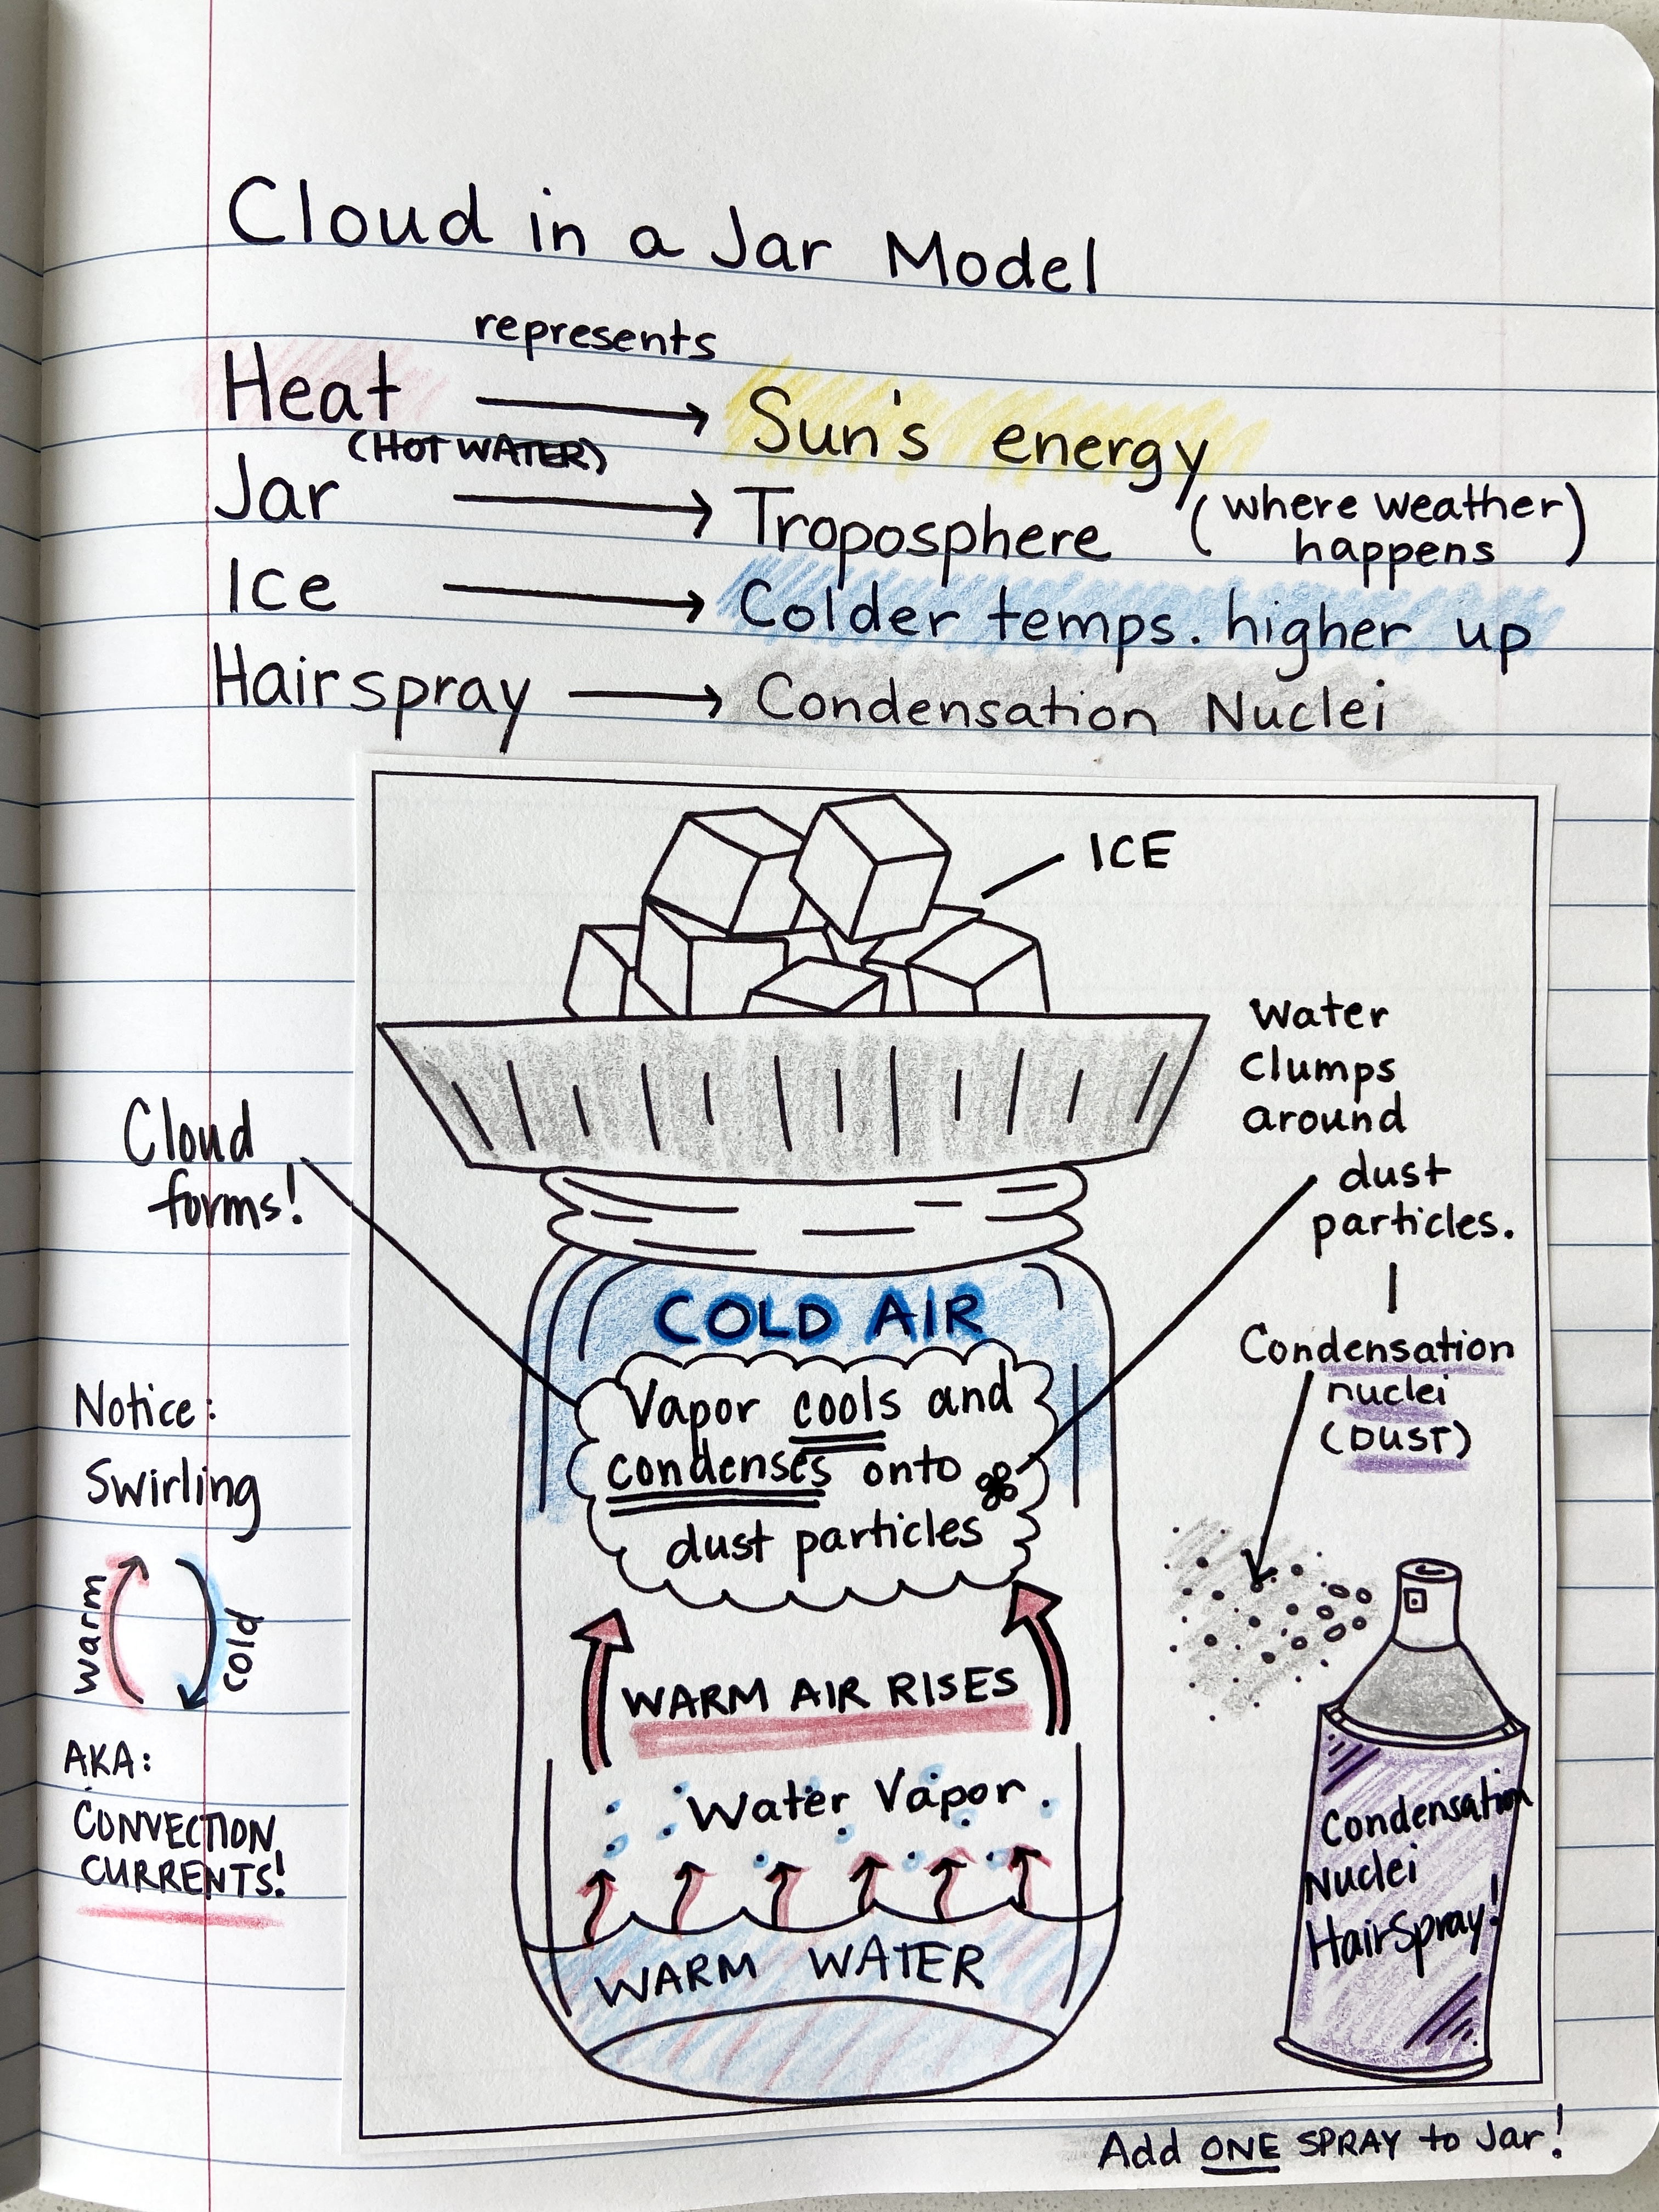 Cloud in a Jar Model
represents
Heat → Sun's energy
(HOT WATER)
Jar → Troposphere (where weather happens)
Ice → Colder temps. higher up
Hairspray → Condensation Nuclei
ICE
Water
clumps
around
dust
particles.
Condensation
nuclei
(DUST)
Cloud
forms!
COLD AIR
Vapor cools and
condenses onto
dust particles
Notice:
Swirling
warm
cold
AKA:
CONVECTION
CURRENTS!
WARM AIR RISES
Water Vapor
WARM WATER
Condensation
Nuclei
HairSpray!
Add ONE SPRAY to Jar!